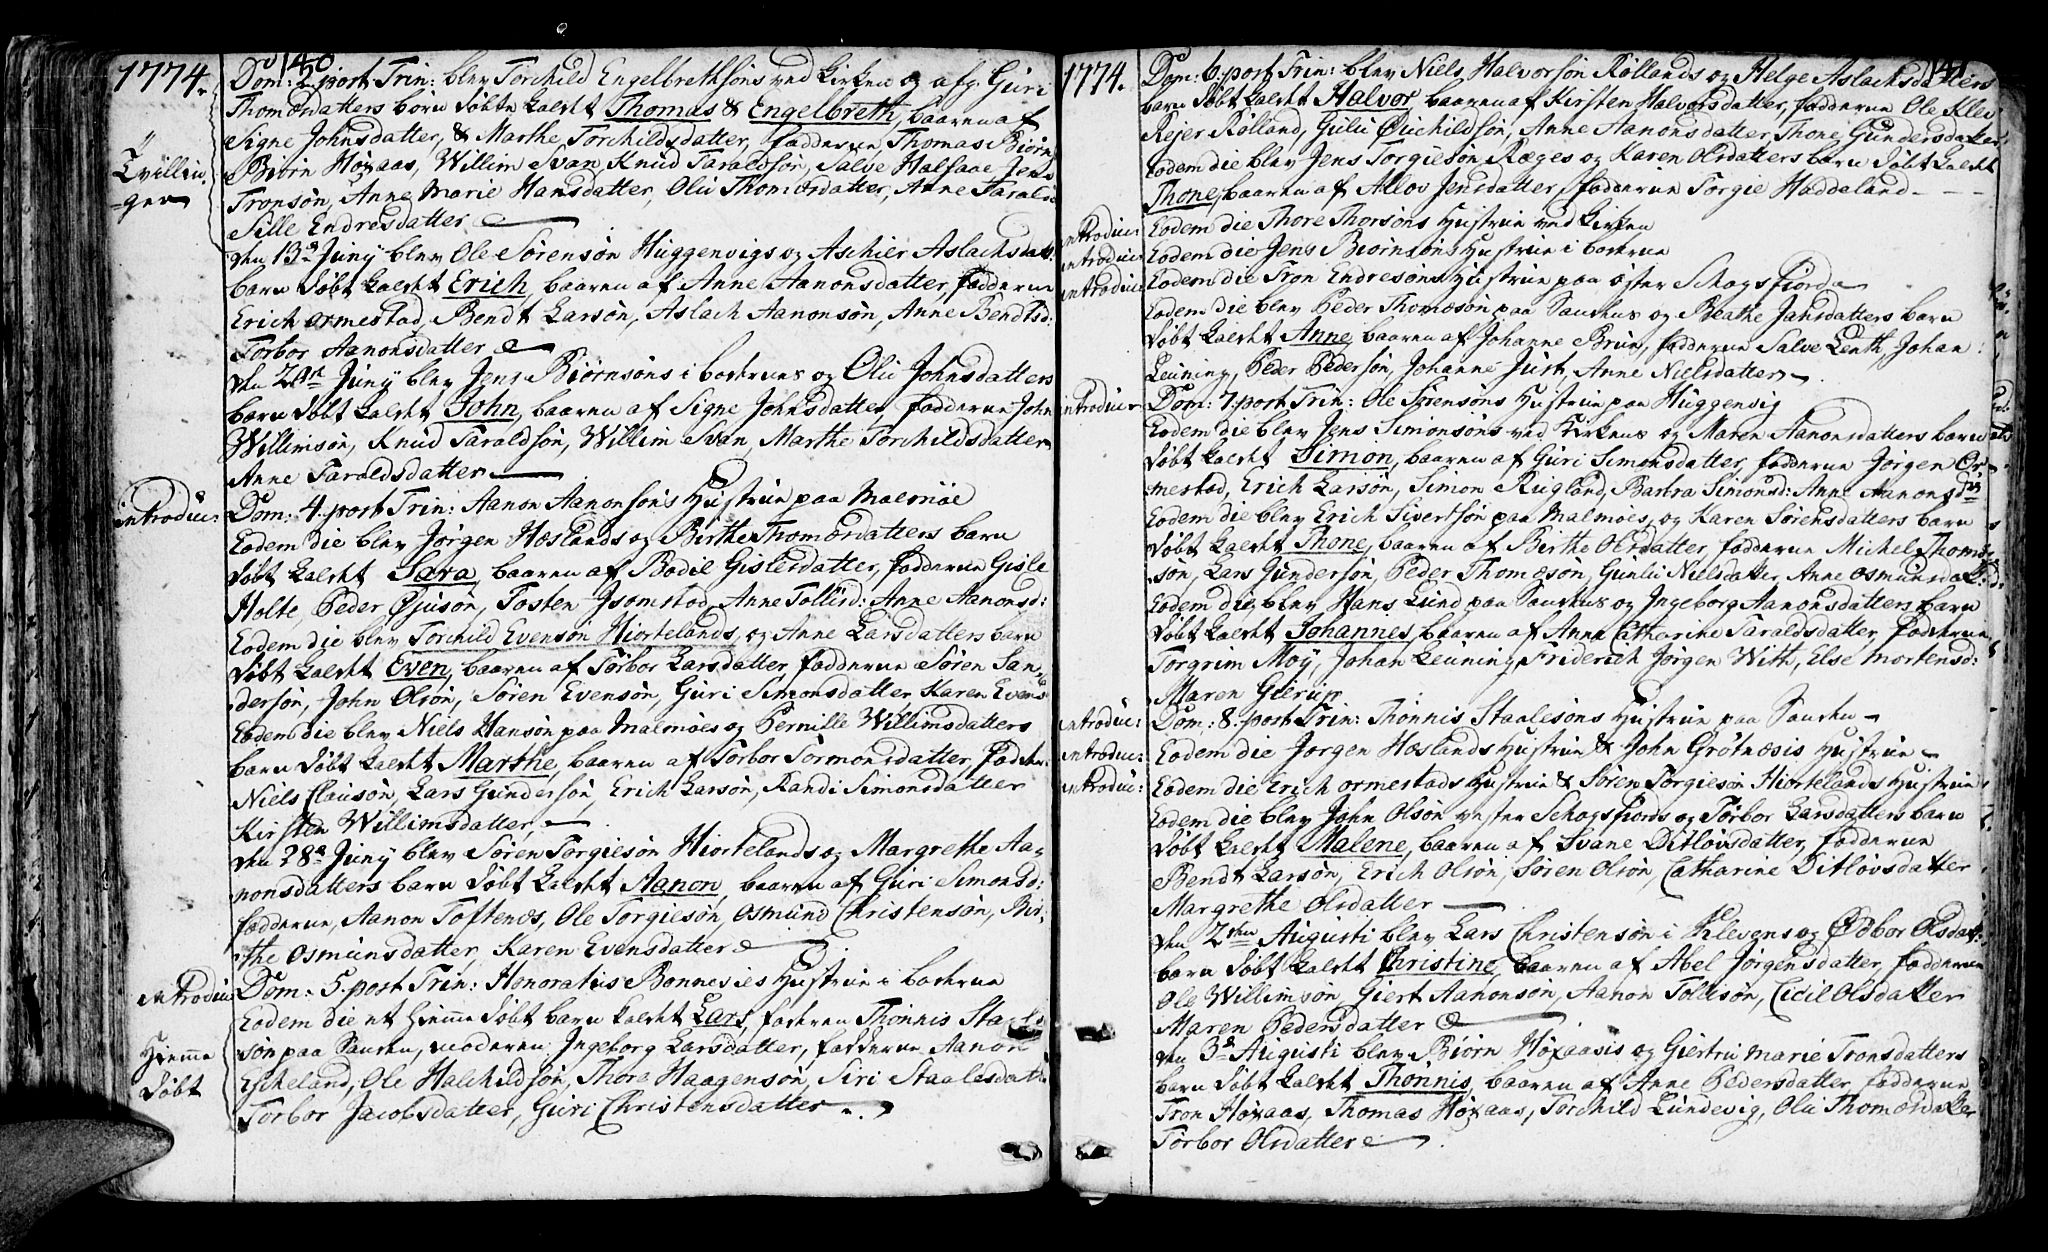 140
1774.
Dom: 2 post Trin: blev Torchild Engelbrethsøns ved Kirken og afg. Guri
Thomasdatters børn døbte kaldt Thomas & Engelbreth, baaren af
Signe Johnsdatter, & Marthe Torchildsdatter, fadderne Thomas Biørn
Tvillin-
ger
Biørn Høyaas, Willim Svan, Knud Taraldsøn, Salve Halsaae, Jens
Tronsøn, Anne Marie Hansdatter, Olu Thomasdatter, Anne Taralds
Sille Endresdatter
den 13de Juny blev Ole Sørensøn Huggenvigs og Aschier Aslachsdat:
barn døbt kaldt Erich, baaren af Anne Aanonsdatter, fadderne
Erich Ormestad, Bendt Larsøn, Aslach Aanonsøn, Anne Bendtsd:
Torbor Aanonsdatter
den Juny blev Jens Biørnsøns i Boderne og Olu Johnsdatters
barn døbt kaldt John, baaren af Signe Johnsdatter, fadderne John
Willimsøn, Knud Taraldsøn, Willim Svan, Marthe Torchildsdatter
Anne Taraldsdatter
introduc: Dom: 4 post Trin: Aanon Aanonsøns Hustrue paa Malmøe
Eodem die blev Jørgen Hæslands og Birthe Thomasdatters barn
døbt kaldt Sara, baaren af Bodil Gislesdatter, fadderne Gisle
Holte, Peder Ojusøn, Tosten Isomstod, Anne Tollisd: Anne Aanonsd:
Eodem die blev Torchild Evensøn Hiortelands og Anne Larsdatters barn
døbt kaldt Even, baaren af Torbor Larsdatter, fadderne Søren San-
dersøn, John Olsøn, Søren Evensøn, Guri Simonsdatter, Karen Evens
Eodem die blev Niels Hansøn paa Malmøes og Pernille Willimsdatters
barn døbt kaldt Marthe, baaren af Torbor Tormonsdatter, fadder:
Niels Clausøn, Lars Gundersøn, Erich Larsøn, Randi Simonsdatter
Kirsten Willimsdatter,
den 28de Juny blev Søren Torgiesøn Hiortelands og Margrethe Aa-
nonsdatters barn døbt kaldt Aanon, baaren af Guri Simonsd:
fadderne, Aanon Toftenæs, Ole Torgiesøn, Osmund Christensøn, Bir-
the Osmunsdatter, Karen Evensdatter
introduc: Dom: 5 post Trin: Honoratius Bonnevies Hustrue i Boderne
Hiemme
døbt
Eodem die et hiemme døbt barn kaldt Lars, faderen Thønnis Staale
søn paa Sanden, moderen Ingeborg Larsdatter, fadderne Aanon
Eskeland, Ole Halchildsøn, Thore Haagensøn, Siri Staalesdat:
Torbor Jacobsdatter, Guri Christensdatter
141
1774.
Dom: 6 post Trin: blev Niels Halvorsøn Røllands og Helge Aslachsdatters
barn døbt kaldt Halvor, baaren af Kirsten Halvorsdatter, fadderne Ole Klev
Rejer Rølland, Gulu Ouchildsøn, Anne Aanonsdatter, Thone Gundersdatter.
Eodem die blev Jens Torgiesøn Ræges og Karen Olsdatters barn døbt kaldt
Thone, baaren af Allov Jensdatter, fadderne Torgie Haddeland
introduc: Eodem die Thore Thorsøns Hustrue ved Kirken
introduc: Eodem die Jens Biørnsøns Hustrue i Boderne
introduc: Eodem die Tron Endresøns Hustrue paa Øster Schogsfiord
Eodem die blev Peder Thomasøn paa Sandens og Beathe Jansdatters barn
døbt kaldt Anne, baaren af Johanne Brun, fadderne Salve Lenth, Johan
Leuning, Peder Pedersøn, Johanne Just, Anne Nielsdatter
introduc: Dom: 7 post Trin: Ole Sørensøns Hustrue paa Huggenvig
Eodem die blev Jens Simonsøns ved Kirkens og Maren Aanonsdatters barn
døbt kaldt Simon, baaren af Guri Simonsdatter, fadderne Jørgen Or-
mestad, Erich Larsøn, Simon Rugland, Barbra Simonsd: Anne Aanonsdr
Eodem die blev Erich Sivertsøn paa Malmøes og Karen Sørensdatters barn
døbt kaldt Thone, baaren af Birthe Olsdatter, fadderne Michel Thoma-
søn, Lars Gundersøn, Peder Thomasøn, Gunlu Nielsdatter, Anne Osmunsdat:
Eodem die blev Hans Lund paa Sandens og Ingeborg Aanonsdatters barn
døbt kaldt Johannes, baaren af Anne Catharine Taraldsdatter, fadderne
Torgrim Moy, Johan Leuning, Friderich Jørgen With, Else Mortensd:
Maren Gierup
introduc: Dom: 8 post Trin: Thønnis Staalesøns Hustrue paa Sanden
introduc: Eodem die Jørgen Hæslands Hustrue & John Grøtnæsis Hustrue
introduc: Eodem die Erich Ormestads Hustrue & Søren Torgiesøn Hiortelands Hustrue
Eodem die blev John Olsøn vester Schogsfiords og Torbor Larsdatters barn
døbt kaldt Malene, baaren af Svane Ditlovsdatter, fadderne
Bendt Larsøn, Erich Olsøn, Søren Olsøn, Catharine Ditlovsdatter
Margrethe Olsdatter
den 2den Augusti blev Lars Christensøn i Klevens og Odbor Olsdat:
barn døbt kaldt Christine, baaren af Abel Jørgensdatter, fadderne
Ole Willimsøn, Giert Aanonsøn, Aanon Tollisøn, Cicil Olsdatter
Maren Pedersdatter
den 3de Augusti blev Biørn Høyaasis og Giertru Marie Tronsdatters
barn døbt kaldt Thønnis, baaren af Anne Pedersdatter, fadderne
Tron Høyaas, Thomas Høyaas, Torchild Lundevig, Olu Thomasdatter
Torbor Olsdatter